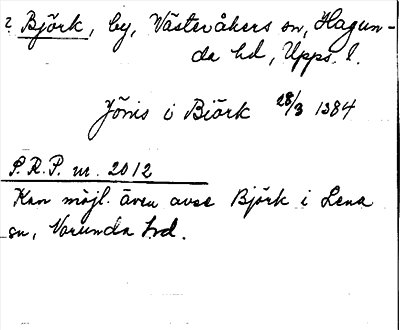 ? Björk, by, Västeråkers sn, Hagun-
da hd, Upps. l.
Jönis i Biörk 28/3 1384
S.R.P. nr. 2012
Kan möjl. även avse Björk i Lena
sn, Norunda hd.